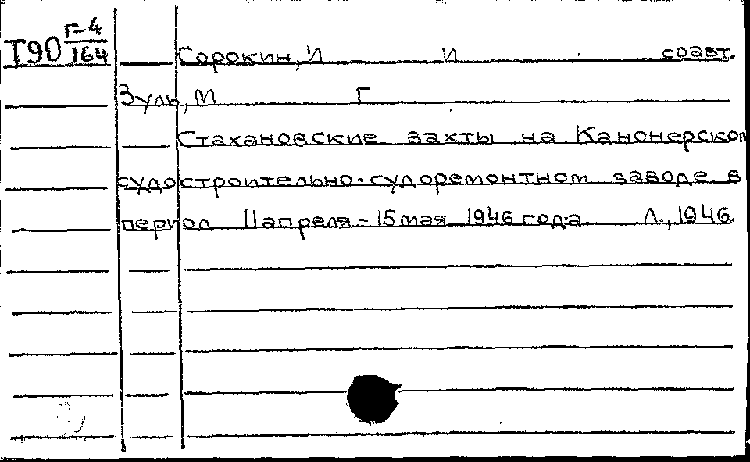 Т90 Г-4/164
Сорокин, И И соавт.
Зуль, М Г
Стахановские вахты на Канонерском
судостроительно-судоремонтном заводе в
период 11 апреля-15 мая 1946 года Л., 1946